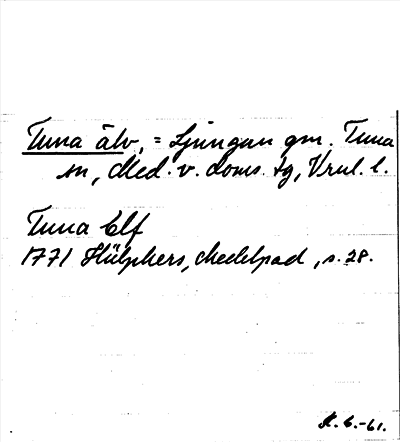 Tuna älv, = Ljungan gm. Tuna
sn, Med. v. doms. tg, Vrnl. l.
Tuna Elf
1771 Hülphers, Medelpad, s. 28.
K. G. -61.